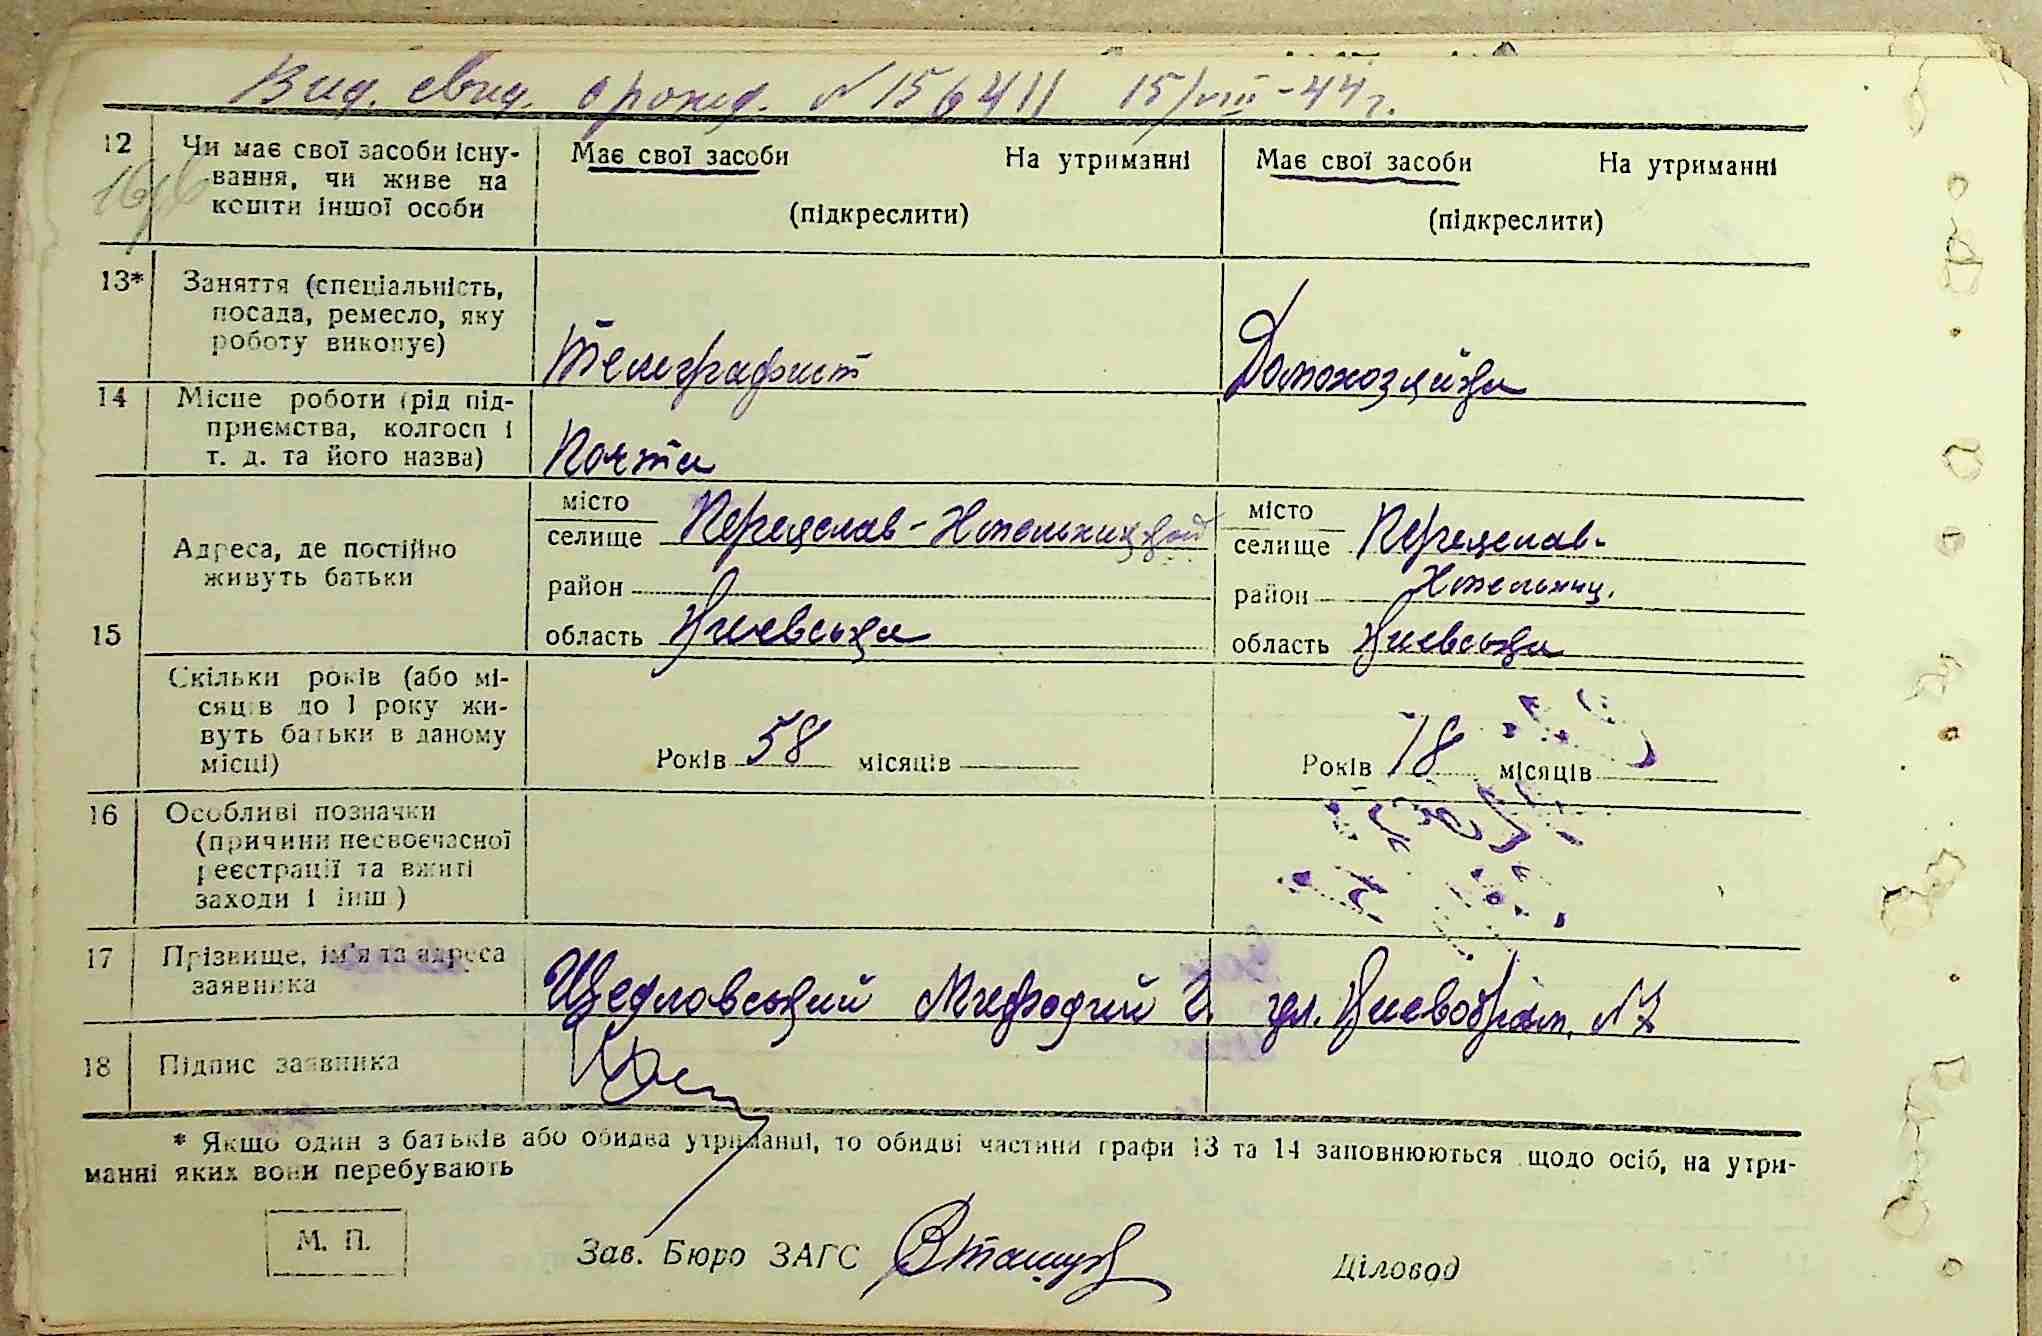 Вид. свид. о рожд. N 156411 15/VIII-44 г.
12 Чи має свої засоби існу- Має свої засоби На утриманні Має свої засоби На утриманні
вання, чи живе на
кошти іншої особи (підкреслити) (підкреслити)
13* Заняття (спеціальність,
посада, ремесло, яку
роботу виконує) Телеграфист Домохозяйка
14 Місце роботи (рід під-
приємства, колгосп і
т. д. та його назва) Почта
місто місто
селище Переяслав-Хмельницкий селище Переяслав-
Адреса, де постійно
живуть батьки
район район Хмельниц.
15 область Киевська область Киевська
Скільки років (або мі-
сяців до 1 року жи-
вуть батьки в даному
місці) Років 58 місяців Років 18 місяців
16 Особливі позначки
(причини несвоєчасної
реєстрації та вжиті
заходи і інш)
17 Прізвище, ім'я та адреса
заявника Щедловський Мефодий И. ул. №7
18 Підпис заявника
* Якщо один з батьків або обидва утриманці, то обидві частини графи 13 та 14 заповнюються щодо осіб, на утри-
манні яких вони перебувають
М. П. Зав. Бюро ЗАГС Діловод